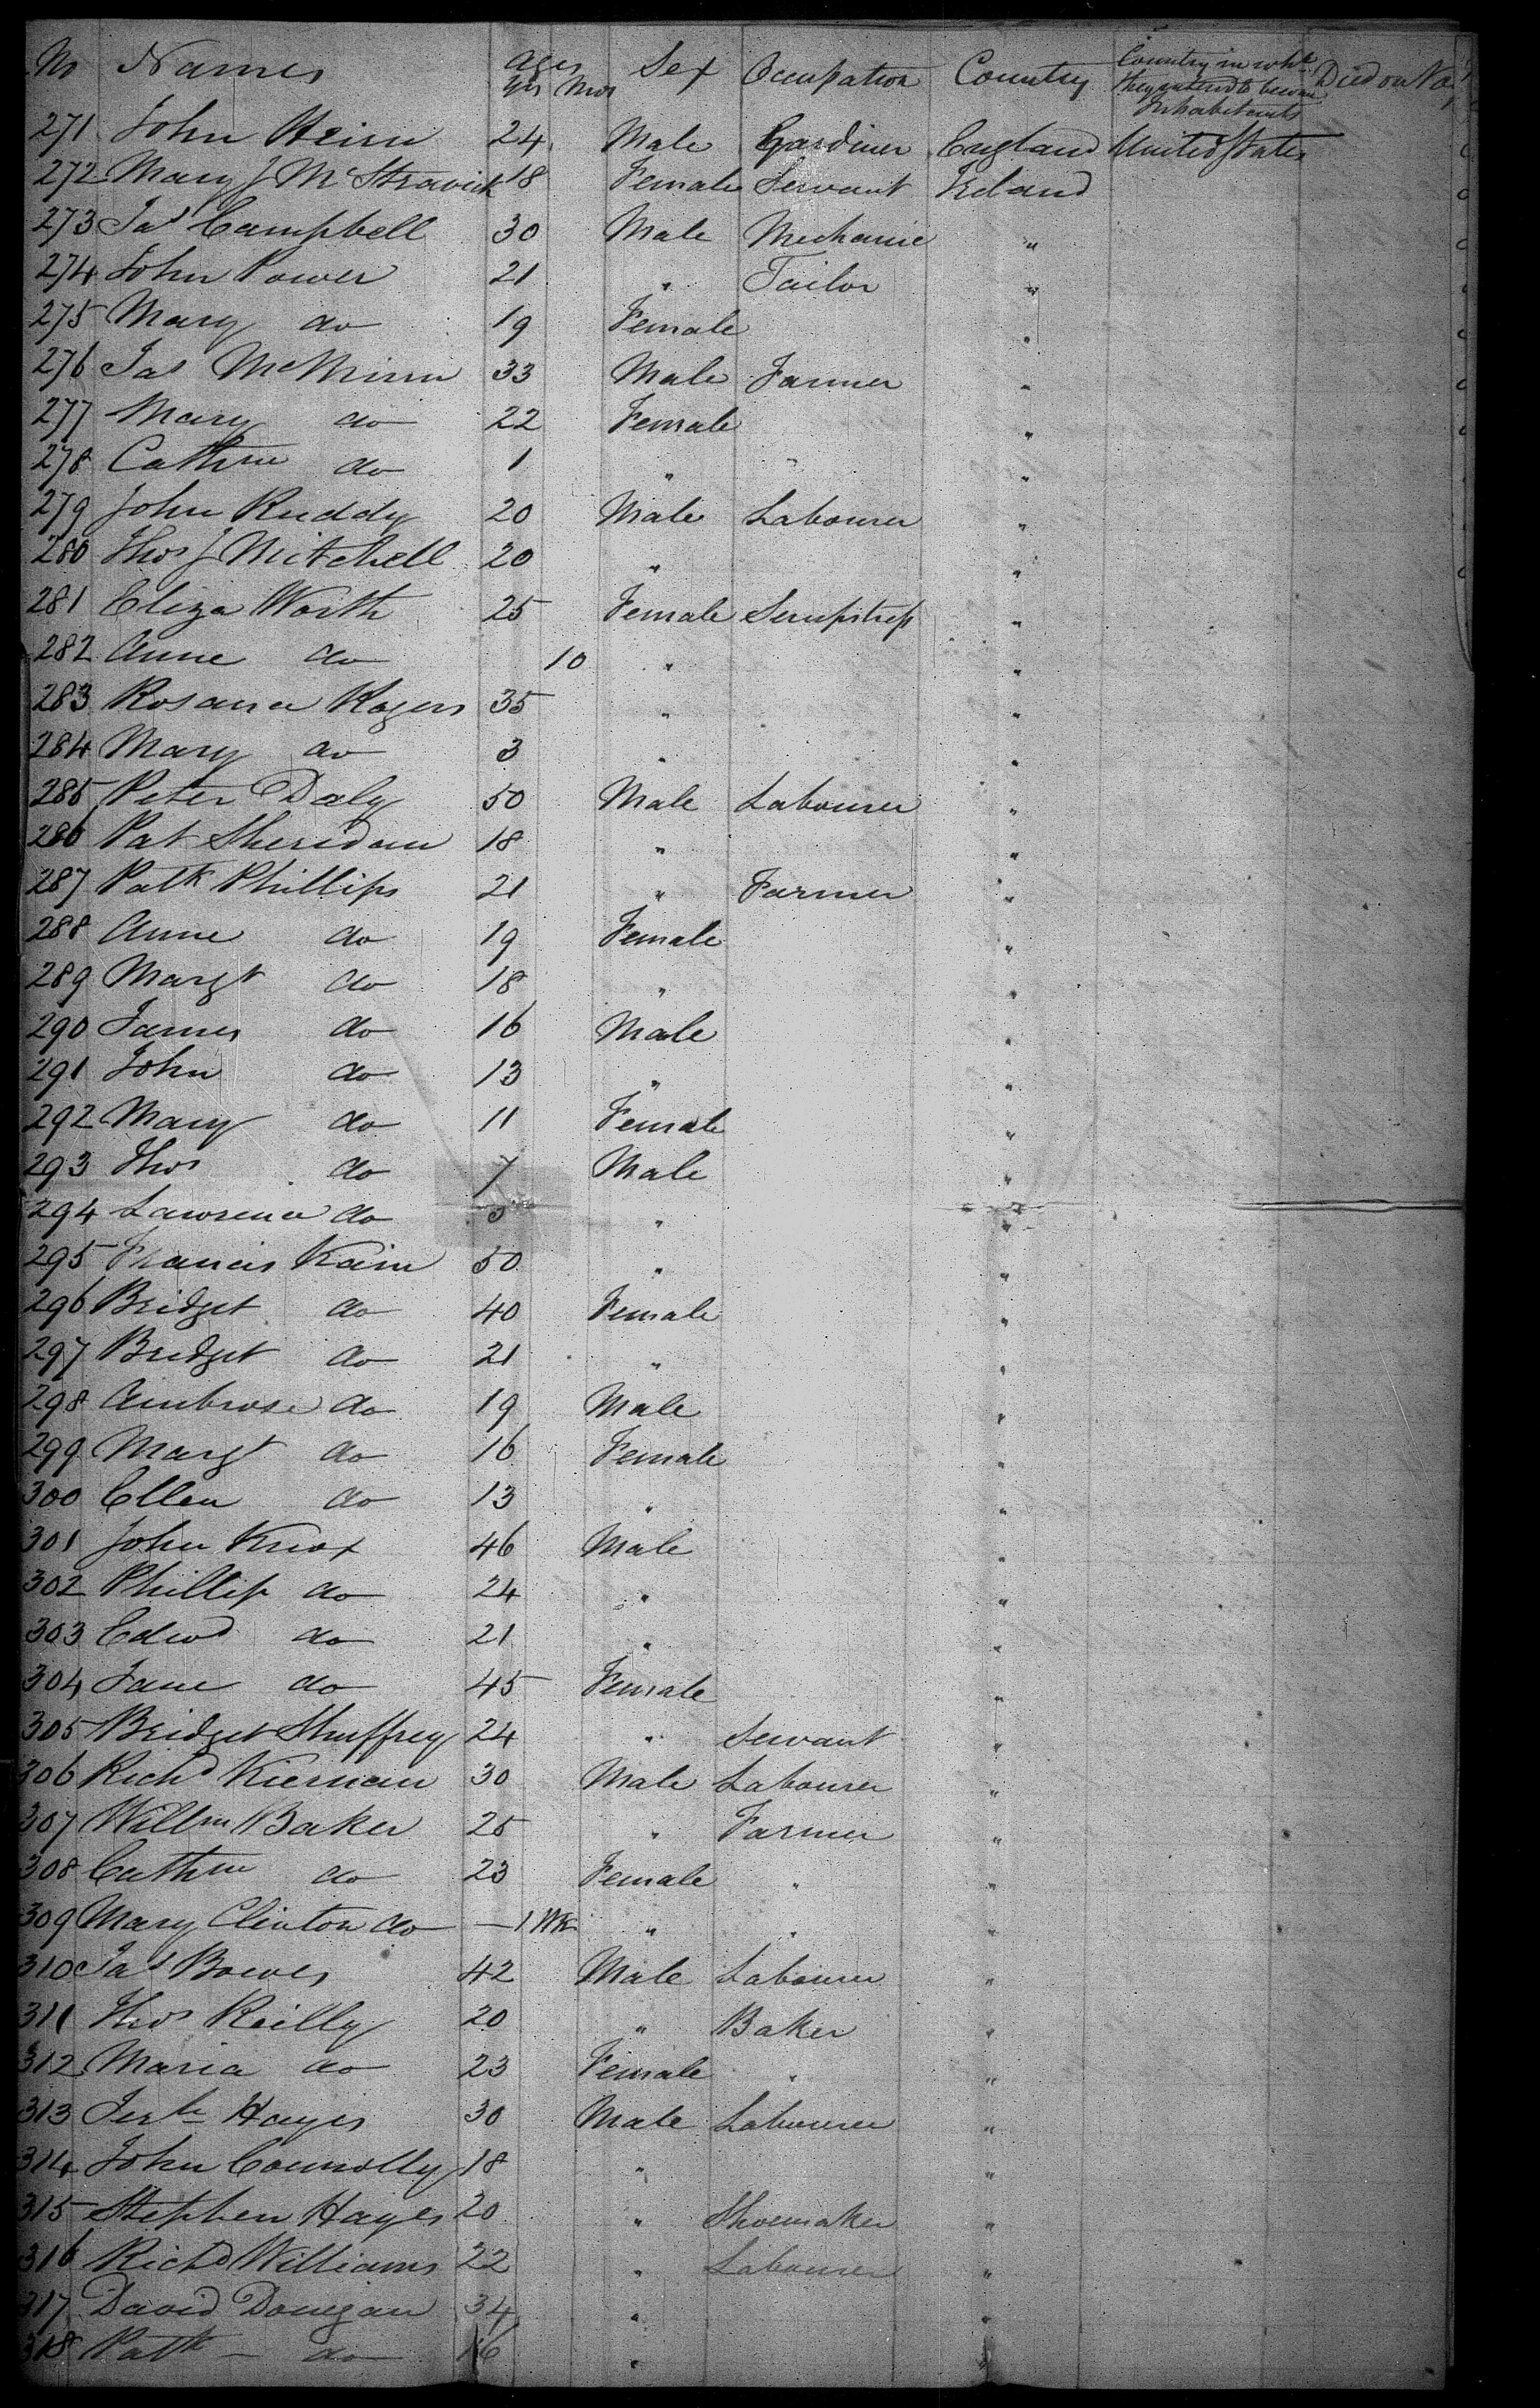 No Names Ages Yrs Mos Sex Occupation Country Country in which they intend to become Inhabitants Died on Voy
271 John Heirn 24 Male Gardiner England United States
272 Mary J McStravick 18 Female Servant Ireland
273 Jas Campbell 30 Male Mechanic "
274 John Power 21 " Tailor "
275 Mary do 19 Female "
276 Jas McMinn 33 Male Farmer "
277 Mary do 22 Female "
278 Cathne do 1 " "
279 John Ruddy 20 Male Labourer "
280 Thos J Mitchell 20 " "
281 Eliza Worth 25 Female Sempstress "
282 Anne do 10 " "
283 Rosana Rogers 35 " "
284 Mary do 3 " "
285 Peter Daly 50 Male Labourer "
286 Pat Sheridan 18 " "
287 Patk Phillips 21 " Farmer "
288 Anne do 19 Female "
289 Margt do 18 " "
290 James do 16 Male "
291 John do 13 " "
292 Mary do 11 Female "
293 Thos do 7 Male "
294 Lawrence do " "
295 Francis Kain 50 " "
296 Bridget do 40 Female "
297 Bridget do 21 " "
298 Ambrose do 19 Male "
299 Margt do 16 Female "
300 Ellen do 13 " "
301 John Knox 46 Male "
302 Phillip do 24 " "
303 Edwd do 21 " "
304 Jane do 45 Female "
305 Bridget Shuffrey 24 " Servant "
306 Richd Kiernan 30 Male Labourer "
307 Willm Baker 25 " Farmer "
308 Cathne do 23 Female " "
309 Mary Clinton do — 1 Wk " " "
310 Jas Bowes 42 Male Labourer "
311 Thos Reilly 20 " Baker "
312 Maria do 23 Female " "
313 Hayes 30 Male Labourer "
314 John Connolly 18 " "
315 Stephen Hayes 20 " Shoemaker "
316 Richd Williams 22 " Labourer "
317 David Donegan 34 " "
318 Patk — do 16 " "